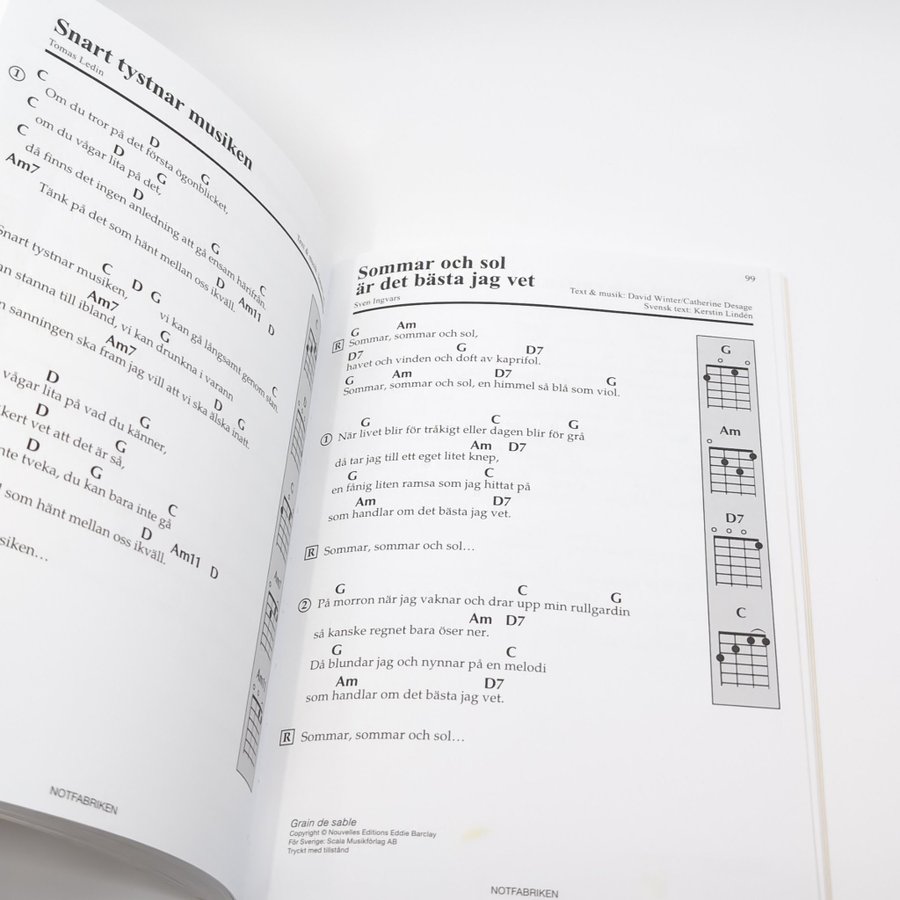 Snart tystnar musiken
Tomas Ledin
Text & musik:
1
C D G
Om du tror på det första ögonblicket,
C D G
om du vågar lita på det,
C D G
då finns det ingen anledning att gå ensam härifrån.
Am7 D C
Tänk på det som hänt mellan oss ikväll.
D Am11 D
Snart tystnar musiken,
C D G
vi kan gå långsamt genom stan.
Am7 G C
stanna till ibland, vi kan drunkna i varann
Am7 D G
sanningen ska fram jag vill att vi ska älska inatt.
D G
vågar lita på vad du känner,
D G
vet att det är så,
D G C
tveka, du kan bara inte gå
D Am11 D
som hänt mellan oss ikväll.
NOTFABRIKEN
99
Sommar och sol
är det bästa jag vet
Sven Ingvars
Text & musik: David Winter/Catherine Desage
Svensk text: Kerstin Lindén
G Am
R Sommar, sommar och sol,
D7 G D7
havet och vinden och doft av kaprifol.
G Am D7 G
Sommar, sommar och sol, en himmel så blå som viol.
G C G
1 När livet blir för tråkigt eller dagen blir för grå
Am D7
då tar jag till ett eget litet knep,
G C
en fånig liten ramsa som jag hittat på
Am D7
som handlar om det bästa jag vet.
R Sommar, sommar och sol...
G C G
2 På morron när jag vaknar och drar upp min rullgardin
Am D7
så kanske regnet bara öser ner.
G C
Då blundar jag och nynnar på en melodi
Am D7
som handlar om det bästa jag vet.
R Sommar, sommar och sol...
G
Am
D7
C
Grain de sable
Copyright © Nouvelles Editions Eddie Barclay
För Sverige: Scala Musikförlag AB
Tryckt med tillstånd
NOTFABRIKEN